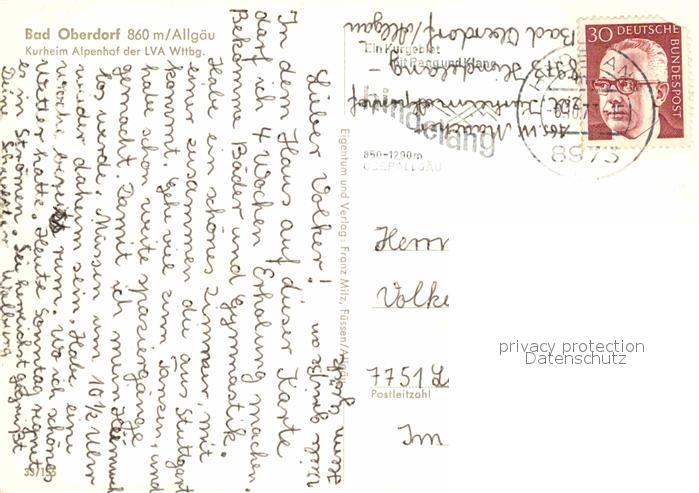 Bad Oberdorf 860 m/Allgäu
Kurheim Alpenhof der LVA Wttbg.
Lieber Volker!
In dem Haus auf dieser Karte
darf ich 4 Wochen Erholung machen.
Bekomme Bäder und Gymnastik.
Habe ein schönes Zimmer, mit
einer zusammen die aus Stuttgart
kommt. Gehe viel zum Tanzen, und
habe schon weite spaziergänge
gemacht. Damit ich mein
los werde. Müssen um 10½ Uhr
wieder daheim sein. Habe eine
woche bereits rum. Wo ich schönes
Wetter hatte. Heute Sonntag regnet
es in Strömen. Sei herzlichst gegrüßt
Deine Schwester Walburg
33/153
Eigentum und Verlag: Franz Milz, Füssen/Allgäu
Abs. W.
Hindelang -
Bad Oberdorf/Allgäu
Ein Kurgebiet
mit Rang und Klang
hindelang
850-1200m
OBERALLGÄU
8973
30 DEUTSCHE
BUNDESPOST
Herrn
Volke
7751 L
Postleitzahl
Im
privacy protection
Datenschutz